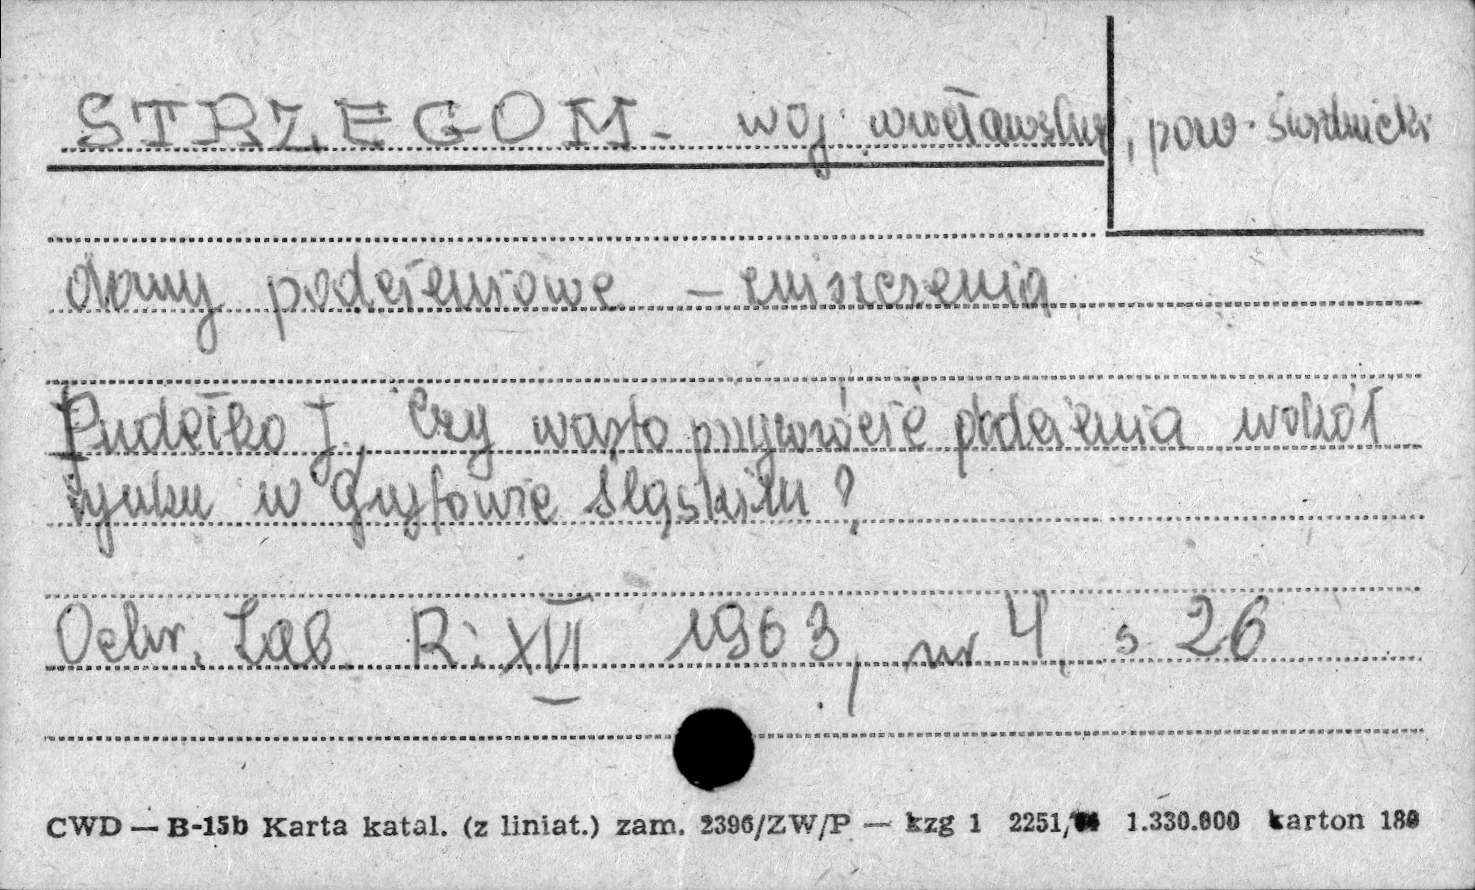 STRZEGOM - woj. wrocławskie, pow. świdnicki
domy podcieniowe - zniszczenia
Pudełko J., Czy warto przywrócić podcienia wokół
rynku w Gryfowie Śląskim?
Ochr. Zab. R: XVI 1963, nr 4, s 26
CWD — B-15b Karta katal. (z liniat.) zam. 2396/ZW/P — kzg 1 2251/ 1.330.000 karton 180